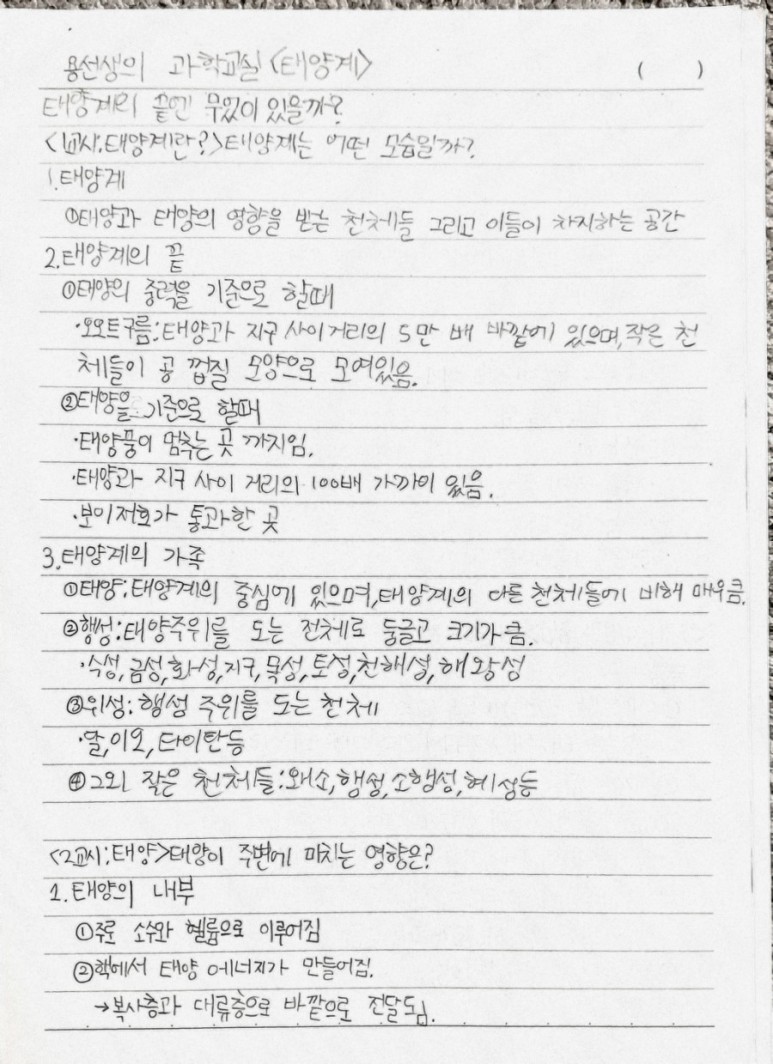 용선생의 과학교실<태양계> ( )
태양계의 끝엔 무엇이 있을까?
<1교시:태양계란?>태양계는 어떤 모습일까?
1.태양계
①태양과 태양의 영향을 받는 천체들 그리고 이들이 차지하는 공간
2.태양계의 끝
①태양의 중력을 기준으로 할때
·오오트구름:태양과 지구 사이 거리의 5만 배 바깥에 있으며,작은 천
체들이 공 껍질 모양으로 모여있음.
②태양을 기준으로 할때
·태양풍이 멈추는 곳 까지임.
·태양과 지구 사이 거리의 100배 가까이 있음.
·보이저호가 통과한 곳
3.태양계의 가족
①태양:태양계의 중심에 있으며,태양계의 다른 천체들에 비해 매우큼.
②행성:태양주위를 도는 전체로 둥글고 크기가 큼.
·수성,금성,화성,지구,목성,토성,천해성,해왕성
③위성:행성 주위를 도는 천체
·달,이오,타이탄등
④그외 작은 천체들:왜소,행성,소행성,혜성등
<2교시:태양>태양이 주변에 미치는 영향은?
1.태양의 내부
①주로 소수와 헬륨으로 이루어짐
②핵에서 태양 에너지가 만들어짐.
→복사층과 대류층으로 바깥으로 전달됨.